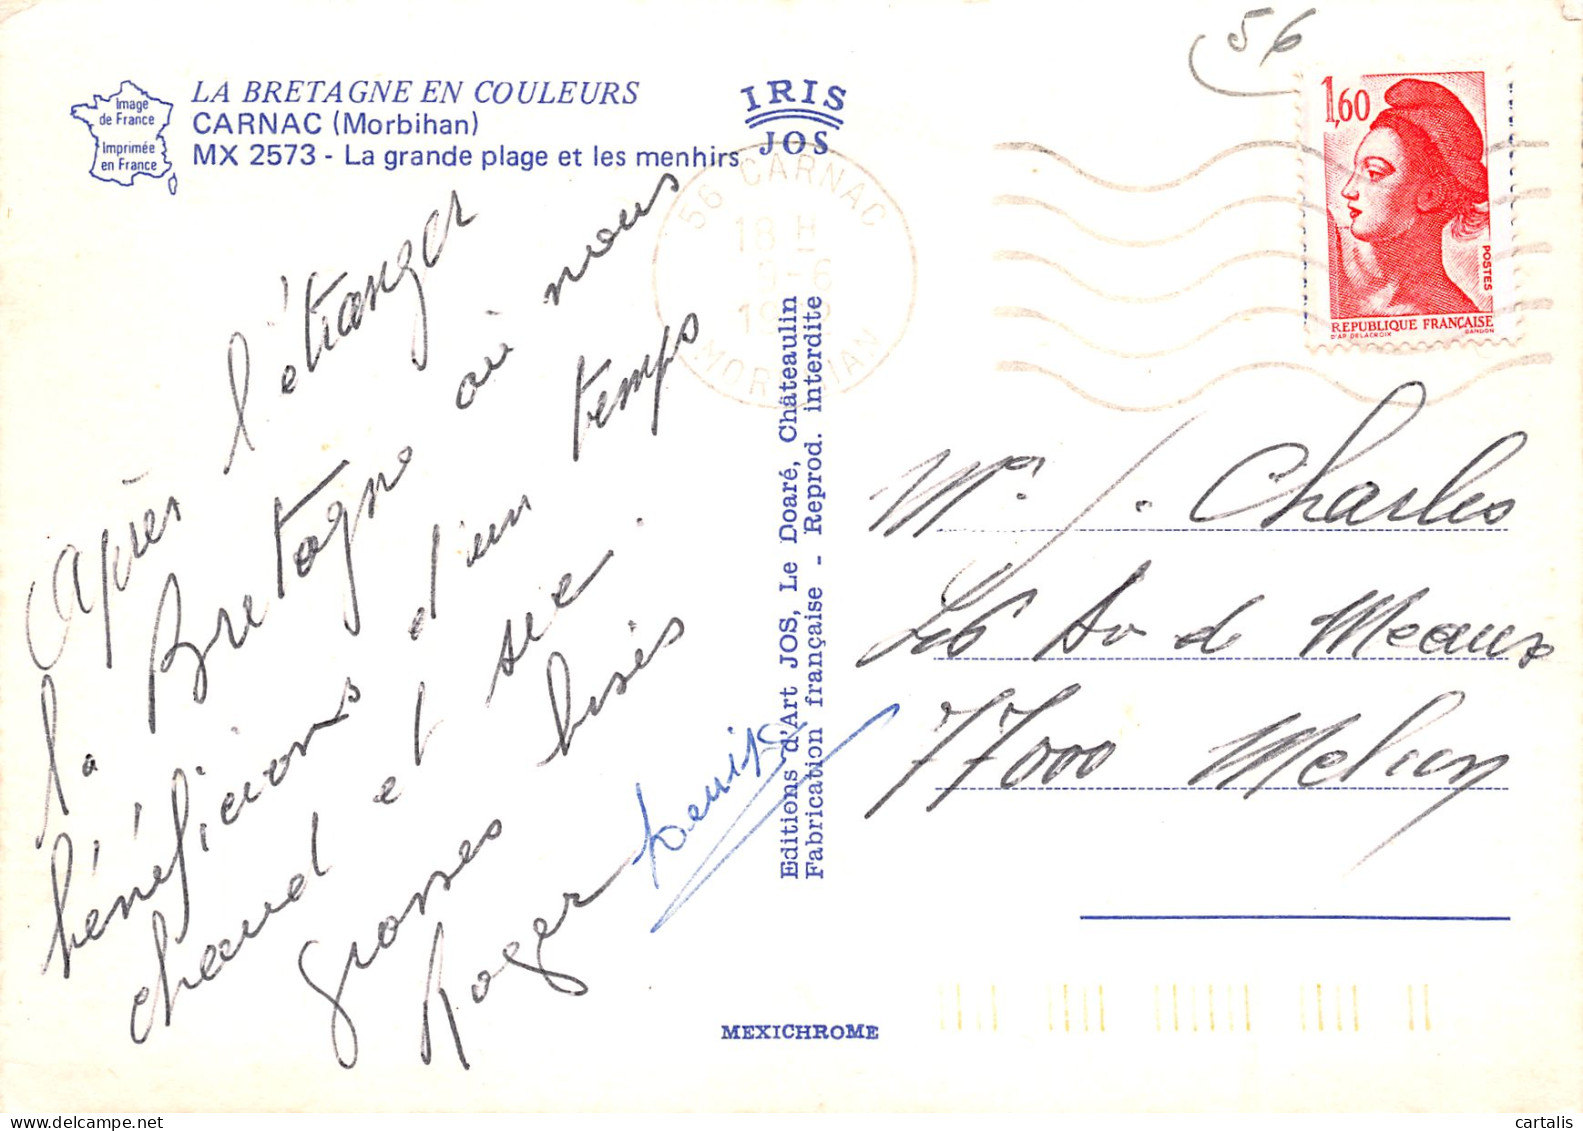 56
Image
de France
Imprimée
en France
LA BRETAGNE EN COULEURS
CARNAC (Morbihan)
MX 2573 - La grande plage et les menhirs
IRIS
JOS
56 CARNAC
18 H
MORBIHAN
1,60
POSTES
REPUBLIQUE FRANÇAISE
D'AP. DELACROIX GANDON
Après l'étranger
la Bretagne où nous
bénéficions d'un temps
chaud et sec.
grosses bises
Roger Denise
Editions d'Art JOS, Le Doaré, Châteaulin
Fabrication française - Reprod. interdite
Mr J. Charles
Av de Meaux
77000 Melun
MEXICHROME
cartalis